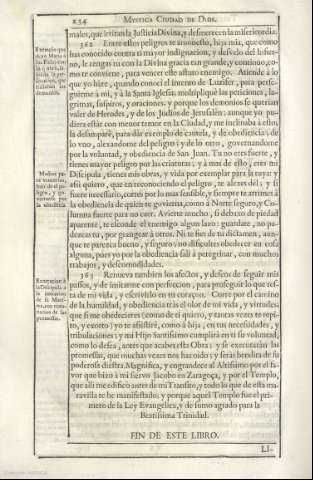 234 MYSTICA CIUDAD DE DIOS.
males, que irritan la Justicia Divina, y desmerecen la misericordia.
362 Entre estos peligros te amonesto, hija mia, que como
has conocido contra ti mayor indignacion, y desvelo del Infier-
no, le tengas tu con la Divina gracia tan grande, y continuo, co-
mo te conviene, para vencer este astuto enemigo. Atiende à lo
que yo hize, quando conocì el intento de Luzifer, para perse-
guirme à mi, y à la Santa Iglesia: multipliquè las peticiones, la-
grimas, suspiros, y oraciones, y porque los demonios se querian
valer de Herodes, y de los Judios de Jerusalèn; aunque yo pu-
diera estàr con menor temor en la Ciudad, y me inclinaba à esto,
la desamparè, para dàr exemplo de cautela, y de obediencia; de
lo vno, alexandome del peligro; y de lo otro, governandome
por la voluntad, y obediencia de San Juan. Tu no eres fuerte, y
tienes mayor peligro por las criaturas; y à mas de esto, eres mi
Discipula, tienes mis obras, y vida por exemplar para la tuya: y
assi quiero, que en reconociendo el peligro, te alexes del; y si
fuere necessario, cortes por lo mas sensible, y siempre te arrimes à
la obediencia de quien te govierna, como à Norte seguro, y Co-
lumna fuerte para no caer. Advierte mucho, si debaxo de piedad
aparente, te esconde el enemigo algun lazo: guardate, no pa-
dezcas tu, por grangear à otros. Ni te fies de tu dictamen, aun-
que te parezca bueno, y seguro: no dificultes obedecer en cosa
alguna, pues yo por la obediencia salì à peregrinar, con muchos
trabajos, y descomodidades.
363 Renueva tambien los afectos, y deseos de seguir mis
passos, y de imitarme con perfeccion, para proseguir lo que res-
ta de mi vida, y escrivirlo en tu coraçon. Corre por el camino
de la humildad, y obediencia tràs el olor de mi vida, y virtudes;
que si me obedecieres (como de ti quiero, y tantas vezes te repi-
to, y exorto) yo te assistirè, como à hija, en tus necessidades, y
tribulaciones; y mi Hijo Santissimo cumplirà en ti su voluntad,
como lo desea, antes que acabes esta Obra; y se executaràn las
promessas, que muchas vezes nos has oido; y seràs bendita de su
poderosa diestra. Magnifica, y engrandece al Altissimo por el fa-
vor que hizo à mi siervo Jacobo en Zaragoça, y por el Templo,
que allì me edificò antes de mi Transito, y todo lo que de esta ma-
ravilla te he manifestado; y porque aquel Templo fue el pri-
mero de la Ley Evangelica, y de sumo agrado para la
Beatissima Trinidad.
FIN DE ESTE LIBRO.
LI-